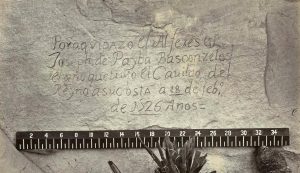 Por aqui paso el Alferes Dn
Joseph de Payba Basconzelos
el año que trujo el Cauildo del
Reyno a su costa a 18 de feb,
de 1726 años =
2 4 6 8 10 12 14 16 18 20 22 24 26 28 30 32 34